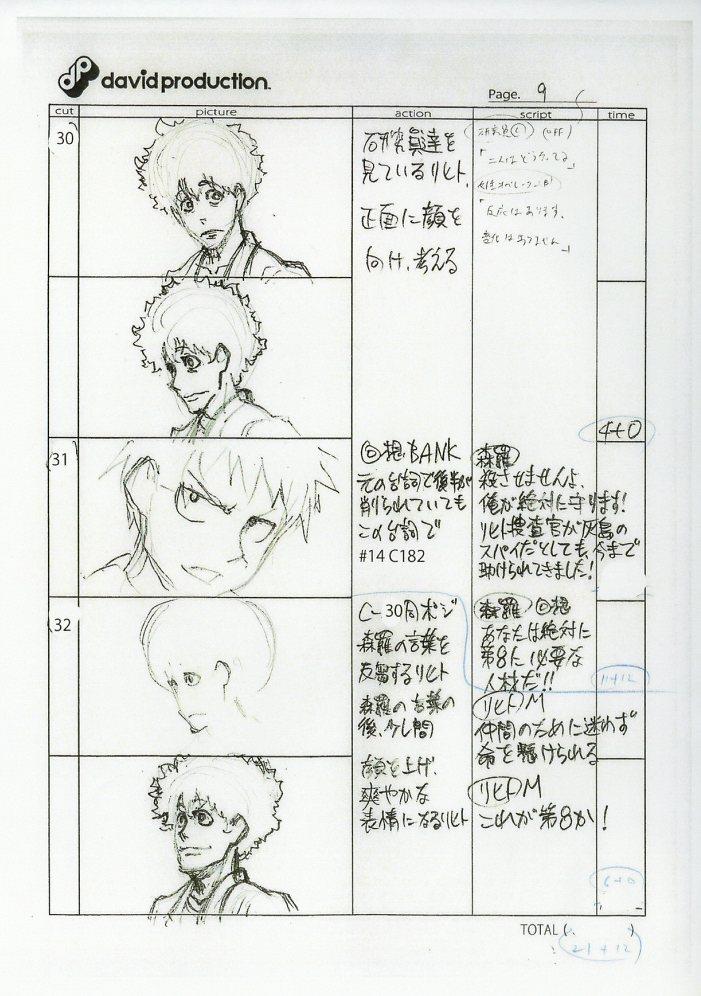 davidproduction.
Page. 9
cut picture action script time
30
研究員達を
見ているリヒト、
正面に顔を
向け、考える
(OFF)
「反応はあります、
4+0
31
回想・BANK
元の台詞で後半が
削られていても
この台詞で
#14 C182
森羅
殺させませんよ、
俺が絶対に守ります!
リヒト捜査官が灰島の
スパイだとしても、今まで
助けられてきました!
32
C-30同ポジ
森羅の言葉を
反芻するリヒト
森羅の言葉の
後、少し間
顔を上げ、
爽やかな
表情になるリヒト
森羅 回想
あなたは絶対に
第8に必要な
人材だ!!
11+12
リヒトM
仲間のために迷わず
命を懸けられる
リヒトM
これが第8か!
6+0
TOTAL ( )
21+12